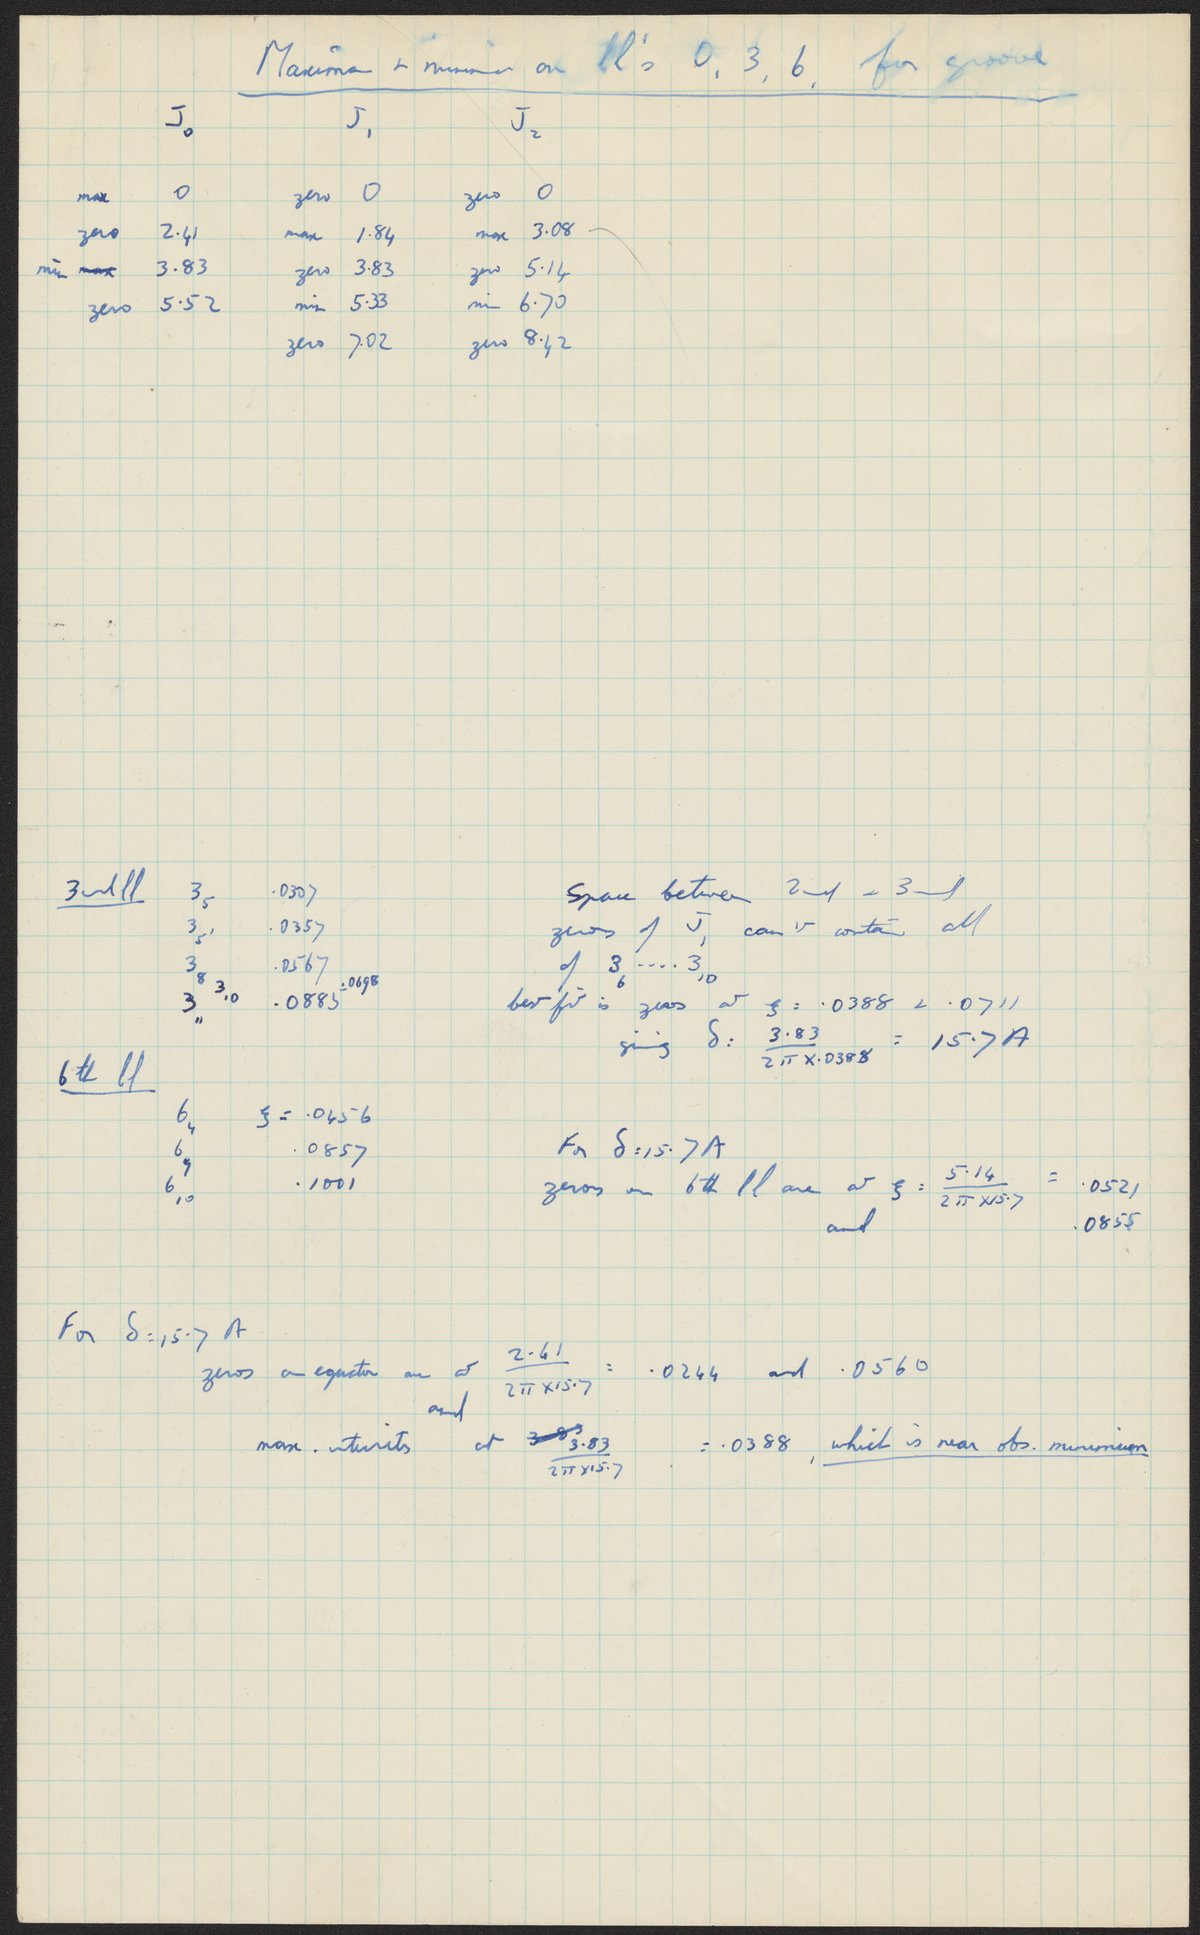 Maxima & minima on ll's 0, 3, 6, for groove
J0 J1 J2
max 0 zero 0 zero 0
zero 2.41 max 1.84 max 3.08
min max 3.83 zero 3.83 zero 5.14
zero 5.52 min 5.33 min 6.70
zero 7.02 zero 8.42
3rd ll 35 .0307
35' .0357
38 .0567
310 .0698
311 .0883
Space between 2nd & 3rd
zeros of J1 can't contain all
of 36 .... 310
best fit is zeros at ξ = .0388 & .0711
giving δ = 3.83 / 2π × .0388 = 15.7 A
6th ll
64 ξ = .0456
69 .0857
610 .1001
For δ = 15.7 A
zeros on 6th ll are at ξ = 5.14 / 2π × 15.7 = .0521
and .0855
For δ = 15.7 A
zeros on equator are at 2.41 / 2π × 15.7 = .0244 and .0560
and
max. intensity at 3.83 3.83 / 2π × 15.7 = .0388, which is near obs. minimum